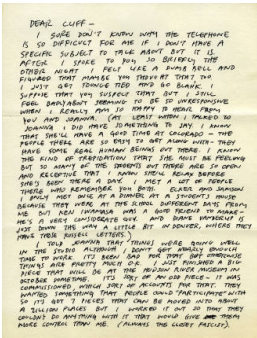 DEAR CLIFF –
I SURE DON'T KNOW WHY THE TELEPHONE
IS SO DIFFICULT FOR ME IF I DON'T HAVE A
SPECIFIC SUBJECT TO TALK ABOUT BUT IT IS.
AFTER I SPOKE TO YOU SO BRIEFLY THE
OTHER NIGHT I FELT LIKE A DUMB BELL AND
FIGURED THAT MAYBE YOU THOUGHT THAT TOO
I JUST GET TONGUE TIED AND GO BLANK. I
SUPPOSE THAT YOU SUSPECT THAT BUT I STILL
FEEL BAD ABOUT SEEMING TO BE SO UNRESPONSIVE
WHEN I REALLY AM SO HAPPY TO HEAR FROM
YOU AND JOANNA. (AT LEAST WHEN I TALKED TO
JOANNA I DID HAVE SOMETHING TO SAY. I KNOW
THAT SHE'LL HAVE A GOOD TIME AT COLORADO – THE
PEOPLE THERE ARE SO EASY TO GET ALONG WITH – THEY
HAVE SOME REAL HUMAN BEINGS OUT THERE. I KNOW
THE KIND OF TREPIDATION THAT SHE MUST BE FEELING
BUT SO MANY OF THE STUDENTS OUT THERE ARE SO OPEN
AND RECEPTIVE THAT I KNOW SHE'LL RELAX BEFORE
SHE'S BEEN THERE A DAY. I MET A LOT OF PEOPLE
THERE WHO REMEMBER YOU BOTH. AND SAMSON
I ONLY MET ONCE AT A DINNER AT A STUDENT'S HOUSE
BECAUSE THEY WERE AT THE SCHOOL DIFFERENT DAYS FROM
ME BUT KEN IWAMASA WAS A GOOD FRIEND TO MAKE –
HE'S A VERY CONSIDERATE GUY. AND DAVE IS
JUST DOWN THE WAY A LITTLE BIT IN DENVER, WHERE THEY
HAVE THEIR RUSSELL LETTERS.)
I TOLD JOANNA THAT THINGS WERE GOING WELL
IN THE STUDIO ALTHOUGH I DON'T GET NEARLY ENOUGH
TIME TO WORK. IT'S BEEN BAD FOR THAT BUT OTHERWISE
THINGS ARE PRETTY MUCH O.K. I JUST FINISHED A BIG
PIECE THAT WILL BE AT THE HUDSON RIVER MUSEUM IN
OCTOBER SOMETIME. IT'S SORT OF AN ODD PIECE – IT WAS
COMMISSIONED, WHICH SORT OF ACCOUNTS FOR THAT. THEY
WANTED SOMETHING THAT PEOPLE COULD "PARTICIPATE" WITH
SO IT'S GOT 7 PIECES THAT CAN BE MOVED INTO ABOUT
A ZILLION PLACES BUT I WORKED IT OUT SO THAT THEY
COULDN'T DO ANYTHING WITH IT THAT WOULD GIVE THEM
MORE CONTROL THAN ME. (ALWAYS THE CLOSET FASCIST).